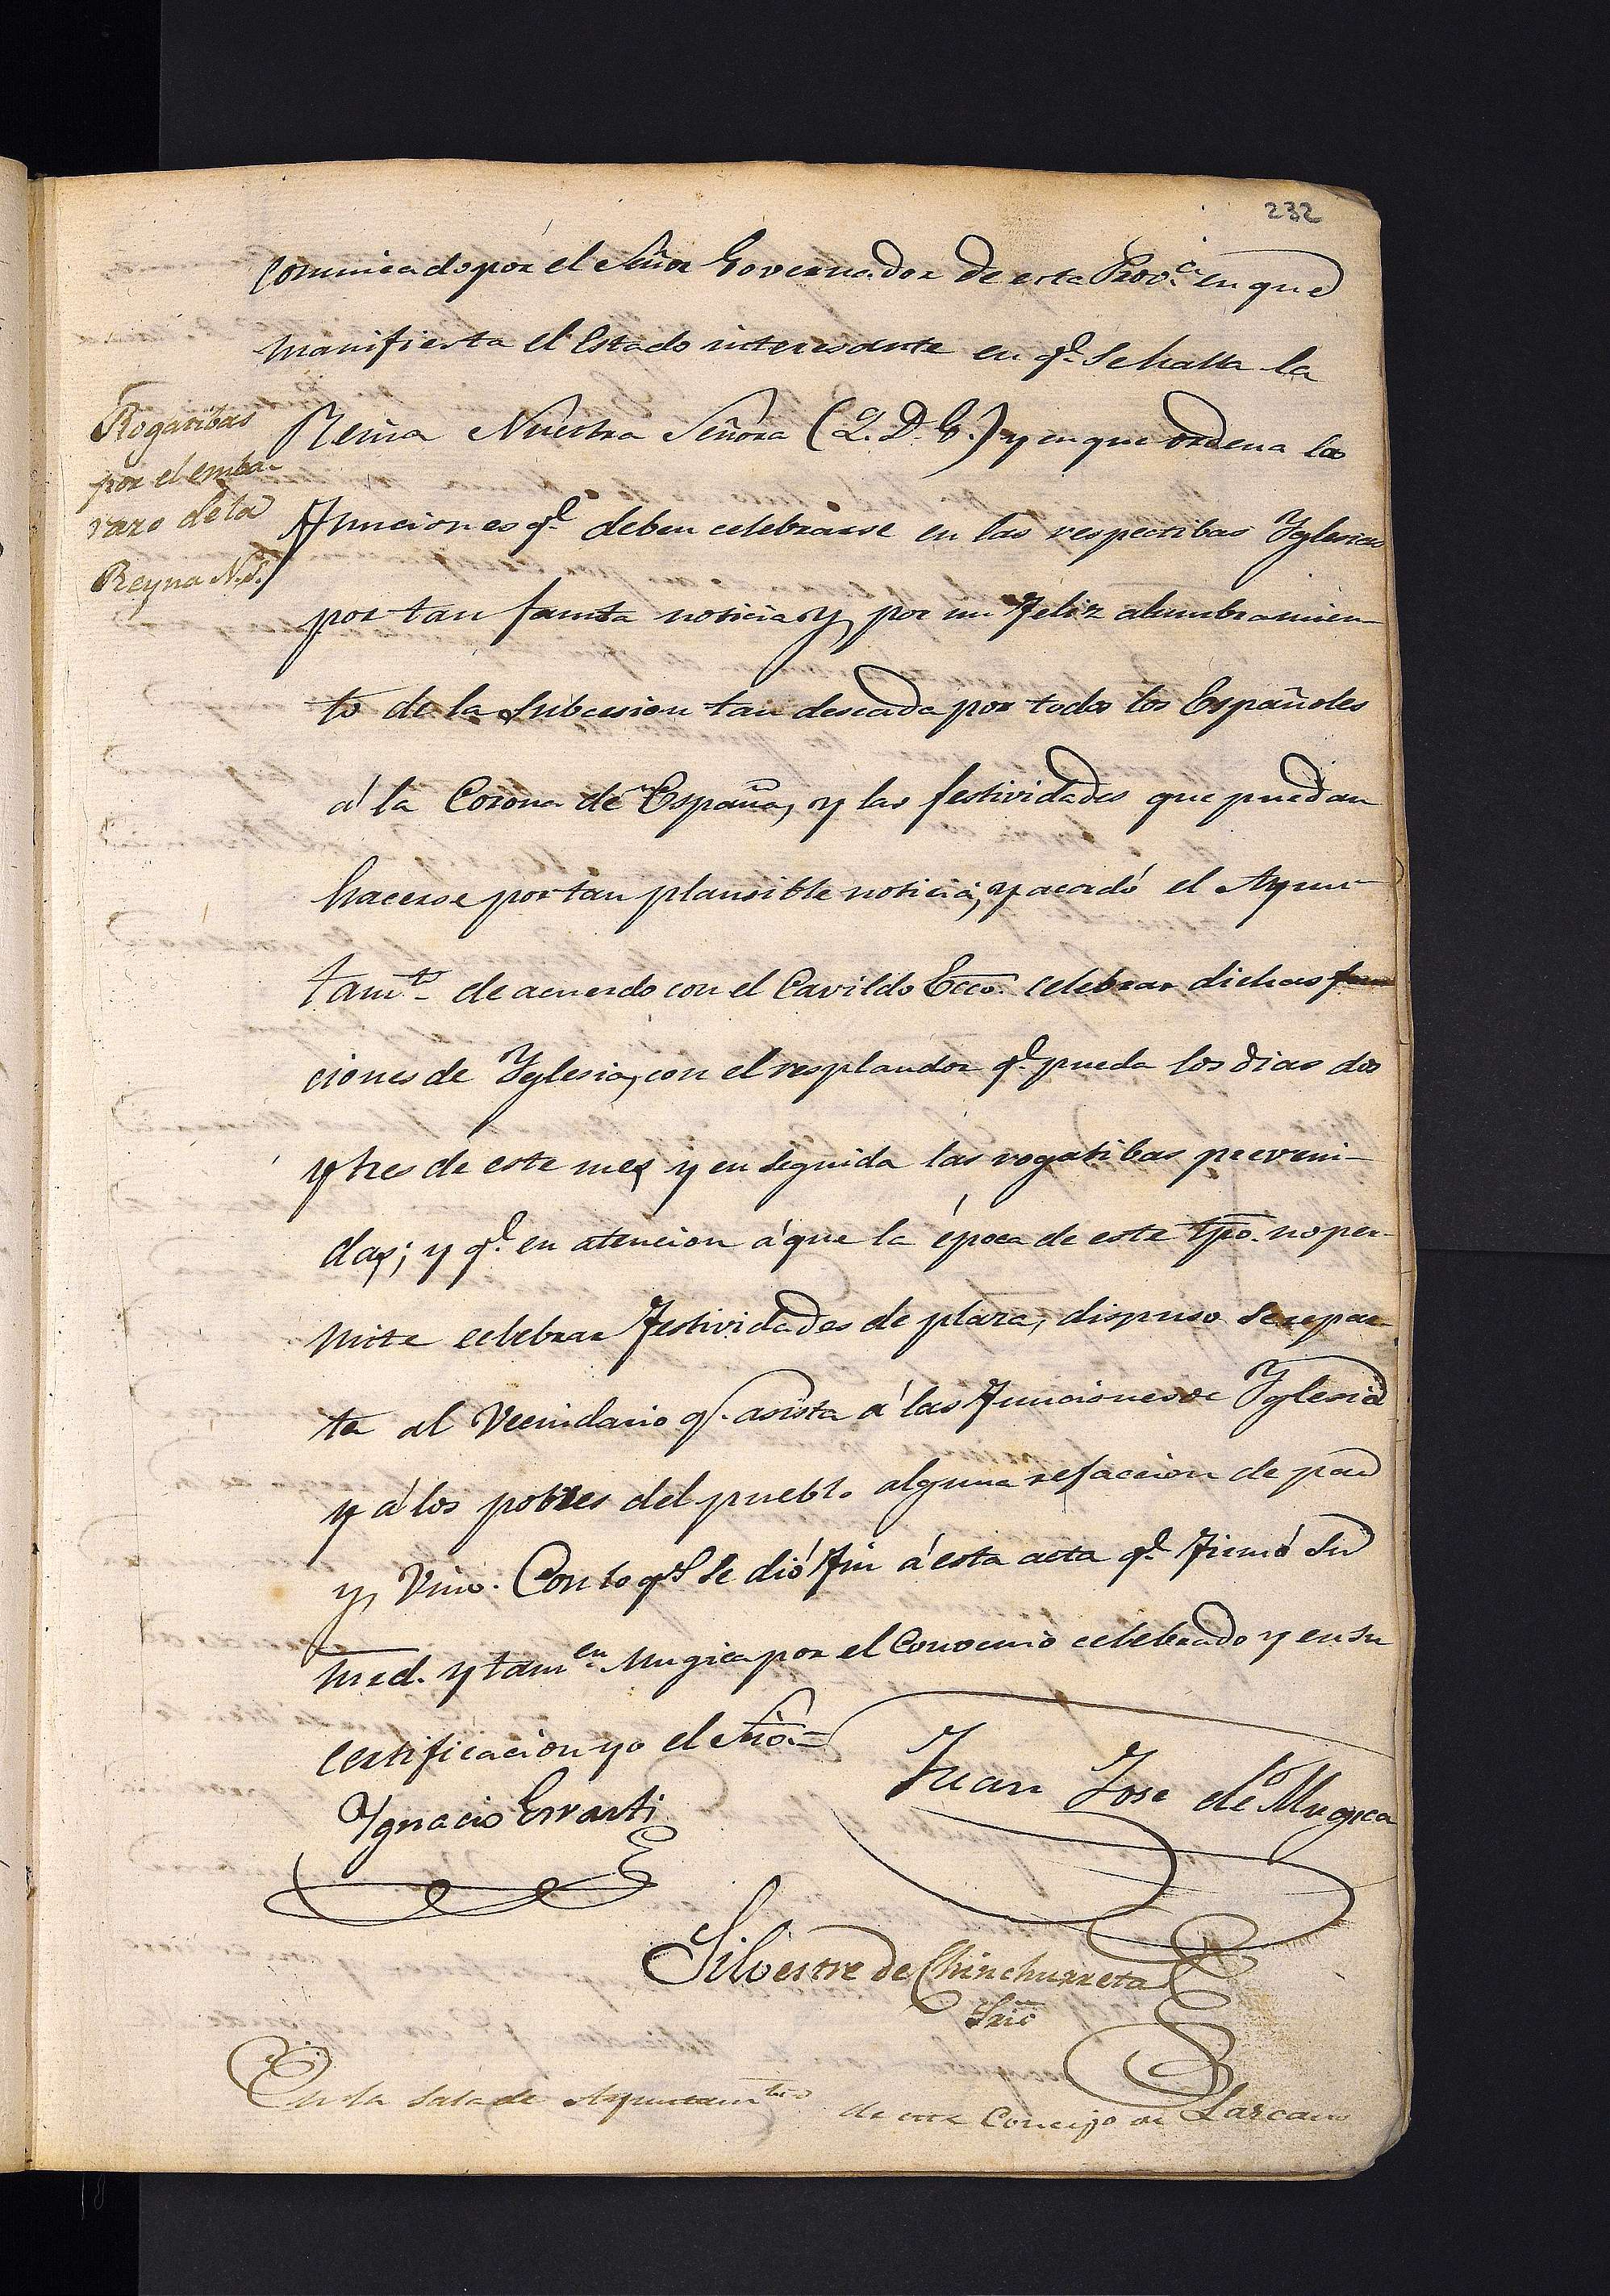 232
comunicado por el Señor Governador de esta Prov.ª en que
manifiesta el Estado interesante en q.e se halla la
Rogatibas
por el emba-
razo de la
Reyna N.S.
Reina Nuestra Señora (Q. D. G.) y en que ordena las
Funciones q.e deben celebrarse en las respectibas Yglesias
por tan fausta noticia y por un Feliz alumbramien-
to de la Subcesion tan deseada por todos los Españoles
á la Corona de España, y las festividades que puedan
hacerse por tan plausible noticia; y acordó el Ayun-
tam.to de acuerdo con el Cavildo Ecco. celebrar dichas fun
ciones de Yglesia, con el resplandor q.e pueda los dias dos
y tres de este mes y en seguida las rogatibas preveni-
das; y q.e en atencion á que la época de este tpo. no per-
mite celebrar Festividades de plaza, dispuso se repar-
ta al Vecindario q.e asista á las Funciones de Yglesia
y á los pobres del pueblo alguna refaccion de pan
y Vino. Con lo q.e se dió Fin á esta acta q.e Firmó Su
mrd. y tam.en Mugica por el Convenio celebrado y en su
certificacion yo el Srio.=
Juan Jose de Mugica
Ygnacio Errasti
Silvestre de Chinchurreta
Srio
En la Sala de Ayuntam.to de este Concejo de Lazcano